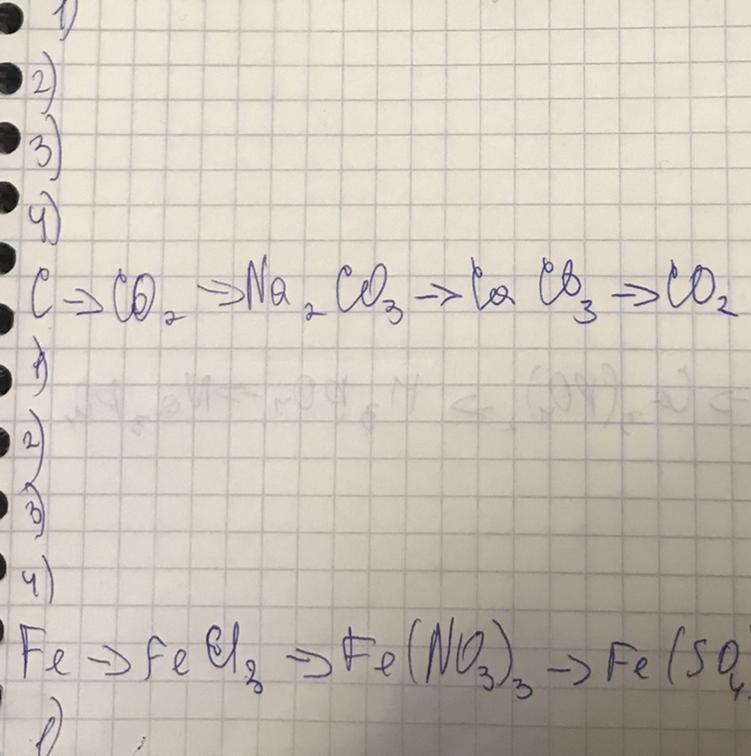 1)
2)
3)
4)
C → CO₂ → Na₂CO₃ → CaCO₃ → CO₂
1)
2)
3)
4)
Fe → FeCl₃ → Fe(NO₃)₃ → Fe(SO₄
1)